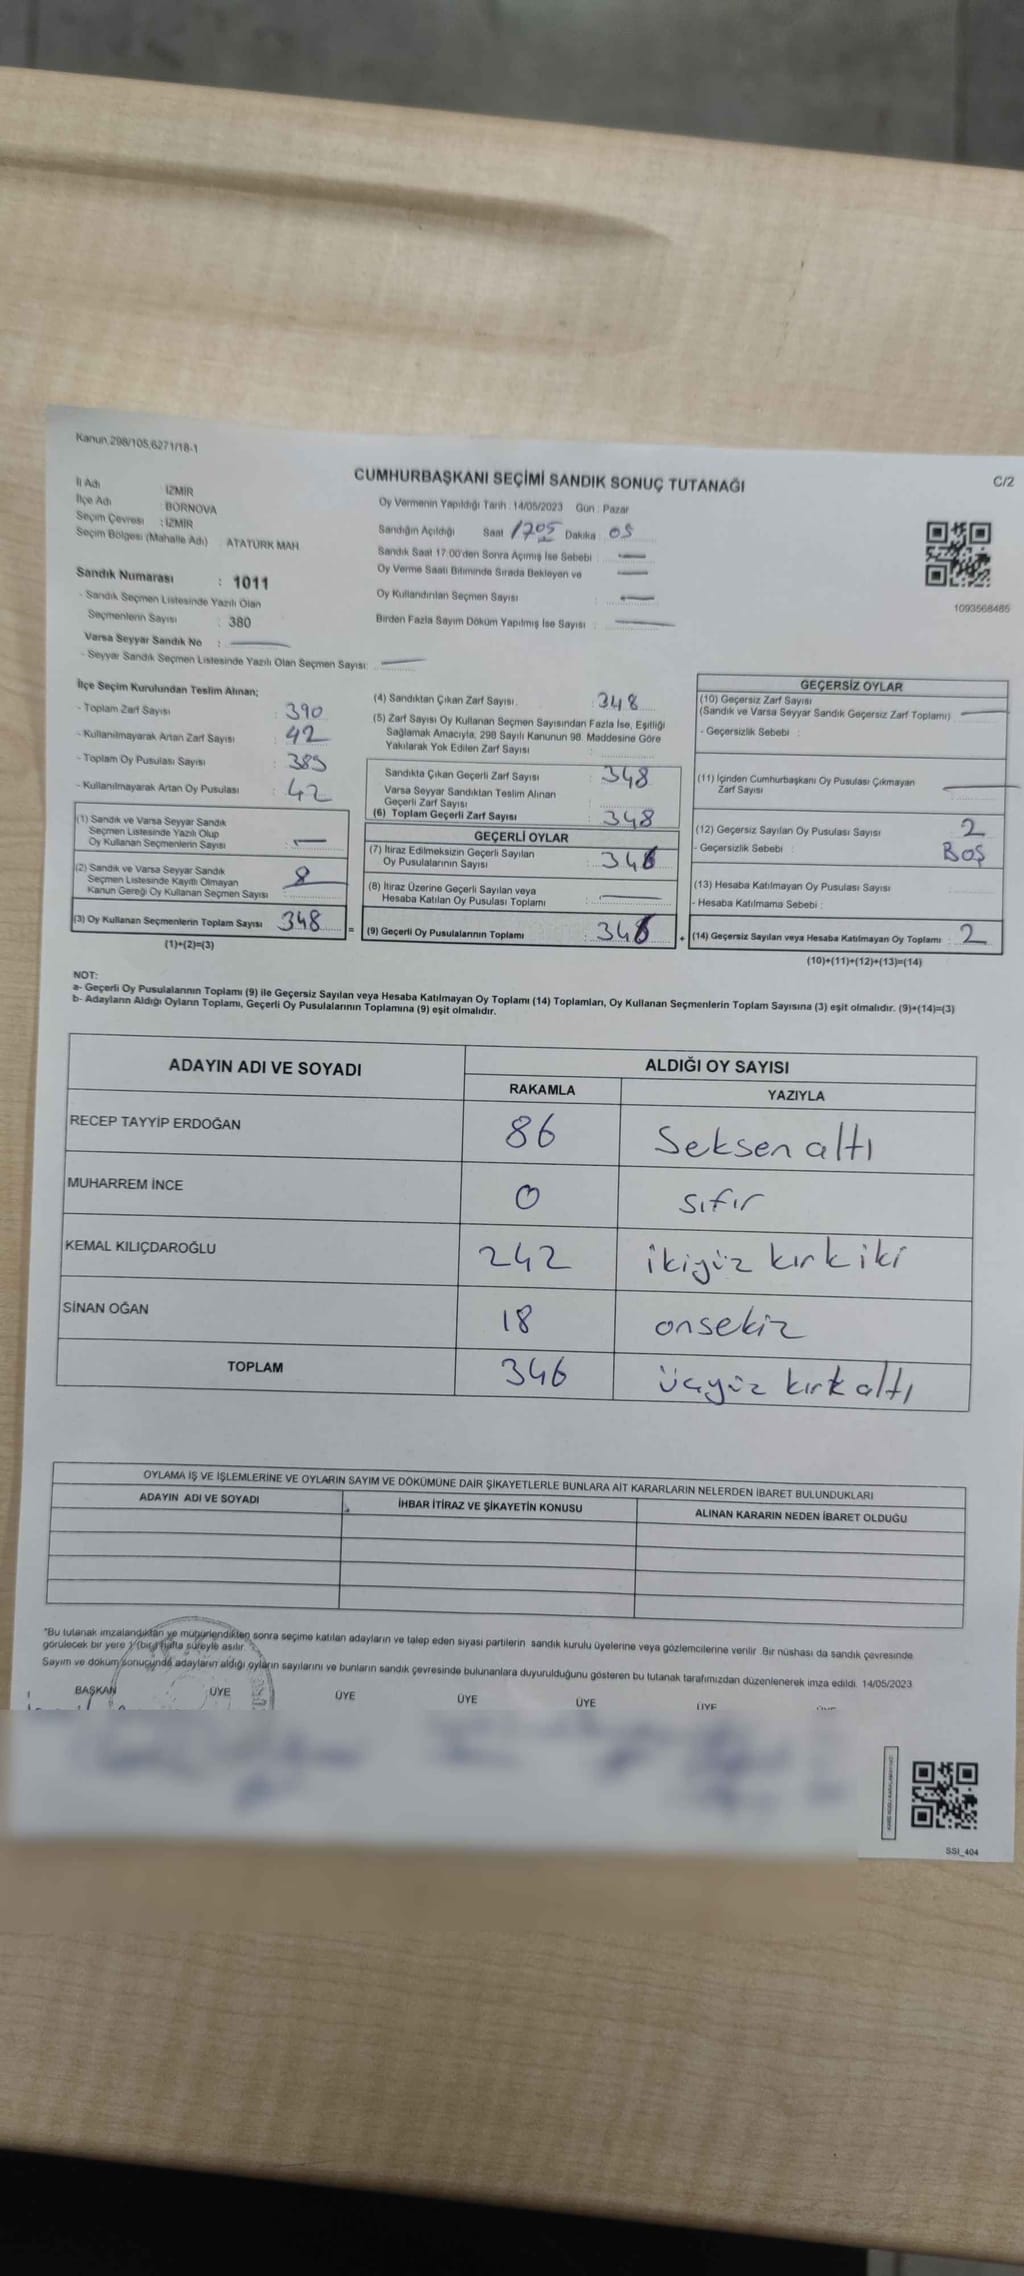 Kanun.298/105,6271/18-1
C/2
CUMHURBAŞKANI SEÇİMİ SANDIK SONUÇ TUTANAĞI
İl Adı İZMİR
İlçe Adı BORNOVA
Seçim Çevresi : İZMİR
Seçim Bölgesi (Mahalle Adı) ATATÜRK MAH
Oy Vermenin Yapıldığı Tarih : 14/05/2023 Gün : Pazar
Sandığın Açıldığı Saat 1705 Dakika 05
Sandık Saat 17:00'den Sonra Açımış İse Sebebi :
Oy Verme Saati Bitiminde Sırada Bekleyen ve
Oy Kullandırılan Seçmen Sayısı :
Birden Fazla Sayım Döküm Yapılmış İse Sayısı :
1093568485
Sandık Numarası : 1011
- Sandık Seçmen Listesinde Yazılı Olan
Seçmenlerin Sayısı : 380
Varsa Seyyar Sandık No :
- Seyyar Sandık Seçmen Listesinde Yazılı Olan Seçmen Sayısı:
İlçe Seçim Kurulundan Teslim Alınan;
- Toplam Zarf Sayısı : 390
- Kullanılmayarak Artan Zarf Sayısı : 42
- Toplam Oy Pusulası Sayısı : 385
- Kullanılmayarak Artan Oy Pusulası : 42
(1) Sandık ve Varsa Seyyar Sandık
Seçmen Listesinde Yazılı Olup
Oy Kullanan Seçmenlerin Sayısı :
(2) Sandık ve Varsa Seyyar Sandık
Seçmen Listesinde Kayıtlı Olmayan
Kanun Gereği Oy Kullanan Seçmen Sayısı
(3) Oy Kullanan Seçmenlerin Toplam Sayısı 348
(1)+(2)=(3)
=
(4) Sandıktan Çıkan Zarf Sayısı : 348
(5) Zarf Sayısı Oy Kullanan Seçmen Sayısından Fazla İse, Eşitliği
Sağlamak Amacıyla, 298 Sayılı Kanunun 98. Maddesine Göre
Yakılarak Yok Edilen Zarf Sayısı :
Sandıkta Çıkan Geçerli Zarf Sayısı : 348
Varsa Seyyar Sandıktan Teslim Alınan
Geçerli Zarf Sayısı
(6) Toplam Geçerli Zarf Sayısı : 348
GEÇERLİ OYLAR
(7) İtiraz Edilmeksizin Geçerli Sayılan
Oy Pusulalarının Sayısı : 346
(8) İtiraz Üzerine Geçerli Sayılan veya
Hesaba Katılan Oy Pusulası Toplamı :
(9) Geçerli Oy Pusulalarının Toplamı : 346
+
GEÇERSİZ OYLAR
(10) Geçersiz Zarf Sayısı
(Sandık ve Varsa Seyyar Sandık Geçersiz Zarf Toplamı)
- Geçersizlik Sebebi :
(11) İçinden Cumhurbaşkanı Oy Pusulası Çıkmayan
Zarf Sayısı
(12) Geçersiz Sayılan Oy Pusulası Sayısı 2
- Geçersizlik Sebebi : BOŞ
(13) Hesaba Katılmayan Oy Pusulası Sayısı
- Hesaba Katılmama Sebebi :
(14) Geçersiz Sayılan veya Hesaba Katılmayan Oy Toplamı : 2
(10)+(11)+(12)+(13)=(14)
NOT:
a- Geçerli Oy Pusulalarının Toplamı (9) ile Geçersiz Sayılan veya Hesaba Katılmayan Oy Toplamı (14) Toplamları, Oy Kullanan Seçmenlerin Toplam Sayısına (3) eşit olmalıdır. (9)+(14)=(3)
b- Adayların Aldığı Oyların Toplamı, Geçerli Oy Pusulalarının Toplamına (9) eşit olmalıdır.
ADAYIN ADI VE SOYADI
ALDIĞI OY SAYISI
RAKAMLA YAZIYLA
RECEP TAYYİP ERDOĞAN 86 Seksen altı
MUHARREM İNCE 0 sıfır
KEMAL KILIÇDAROĞLU 242 ikiyüz kırk iki
SİNAN OĞAN 18 onsekiz
TOPLAM 346 üçyüz kırk altı
OYLAMA İŞ VE İŞLEMLERİNE VE OYLARIN SAYIM VE DÖKÜMÜNE DAİR ŞİKAYETLERLE BUNLARA AİT KARARLARIN NELERDEN İBARET BULUNDUKLARI
ADAYIN ADI VE SOYADI İHBAR İTİRAZ VE ŞİKAYETİN KONUSU ALINAN KARARIN NEDEN İBARET OLDUĞU
*Bu tutanak imzalandıktan ve mühürlendikten sonra seçime katılan adayların ve talep eden siyasi partilerin sandık kurulu üyelerine veya gözlemcilerine verilir. Bir nüshası da sandık çevresinde
görülecek bir yere 1 (bir) hafta süreyle asılır.
Sayım ve döküm sonucunda adayların aldığı oyların sayılarını ve bunların sandık çevresinde bulunanlara duyurulduğunu gösteren bu tutanak tarafımızdan düzenlenerek imza edildi. 14/05/2023
BAŞKAN ÜYE ÜYE ÜYE ÜYE ÜYE
SSİ_404